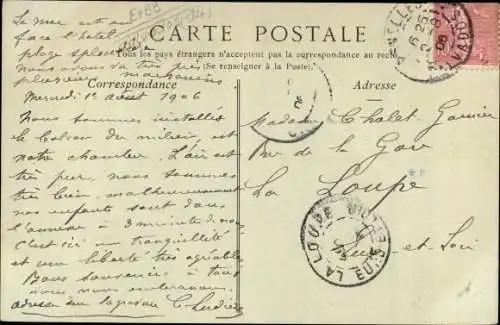 La mer est en
face l'hotel
plage splendide
nous avons vu très près
plusieurs marsouins
CARTE POSTALE
Tous les pays étrangers n'acceptent pas la correspondance au recto
(Se renseigner à la Poste).
Correspondance
Mercredi 1er août 1906
Nous sommes installés
le balcon du milieu, est
notre chambre. L'air est
très pur, nous sommes
très bien, malheureusement
nos enfants sont dans
l'anneau à 3 minutes de nous
C'est ici un tranquillité
et une liberté très agréables
Bons souvenirs à tous
nous vous embrassons
adresse sur la
Adresse
Madame Chalet-Garnier
Rue de la Gare
La Loupe
Eure-et-Loir
LA LOUPE